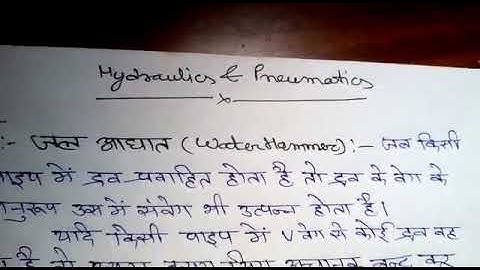 Hydraulics & Pneumatics
:- जल आघात (Water Hammer):- जब किसी
पाइप में द्रव प्रवाहित होता है तो द्रव के वेग के
अनुरूप उस में संवेग भी उत्पन्न होता है।
यदि किसी पाइप में V वेग से कोई द्रव बह